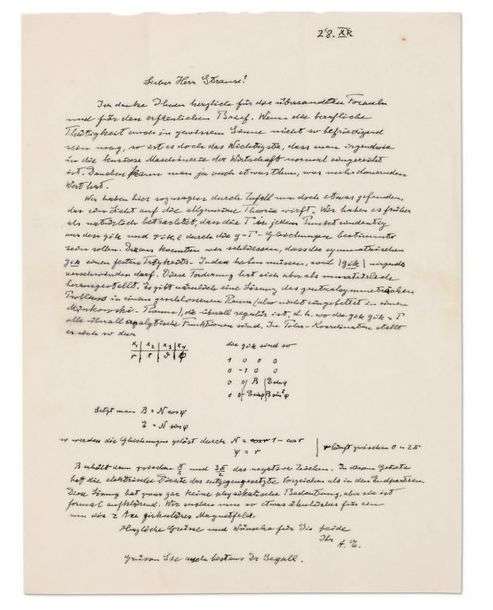 28. XII
Lieber Herr Strauss!
Ich danke Ihnen herzlich für das übersandten Formeln
und für den erfreulichen Brief. Wenn die berufliche
Thätigkeit auch in gewissem Sinne nicht so befriedigend
sein mag, so ist es doch das Wichtigste, dass man irgendwo
in die Maschinerie der Wirtschaft normal eingereiht
ist. Daneben kann man ja noch etwas thun, was mehr dauernden
Wert hat.
Wir haben hier sozusagen durch Zufall nun doch etwas gefunden,
das ein Licht auf die allgemeine Theorie wirft. Wir haben es früher
als natürlich betrachtet, dass die Γ in jedem Punkt eindeutig
aus den gik und gik,l durch die g-Γ-Gleichungen bestimmt
sein sollen. Daraus konnten wir schliessen, dass die symmetrischen
gik einen festen haben müssen, weil |gik| nirgends
verschwinden darf. Diese Forderung hat sich aber als
herausgestellt. Es gibt nämlich eine Lösung des zentralsymmetrischen
Problems in einem geschlossenen Raum (also nicht eingebettet in einen
Minkowski-Raum), die überall regulär ist, d. h. wo die gik gik Γ
alle überall analytische Funktionen sind. In Polar-Koordinaten stellt
es sich so dar
x1 | x2 | x3 | x4
r
die gik sind so
1 0 0 0
0 -1 0 0
0 0
0 0
Setzt man B = N cos φ
= N sin φ
so werden die Gleichungen gelöst durch N = 1 - cos r
ψ = r
r läuft zwischen 0 u 2π
B erhält dann zwischen π/2 und 3π/2 das negative Zeichen. In diesem Gebiete
hat die elektrische Dichte das entgegengesetzte Vorzeichen als in den Endpartien.
Diese Lösung hat zwar gar keine physikalische Bedeutung, aber sie ist
formal aufklärend. Wir suchen nun so etwas ähnliches für ein
um die z Axe zirkuläres Magnetfeld.
Herzliche Grüsse und Wünsche für Sie beide
Ihr
A. E.
Grüssen Sie auch bestens Dr